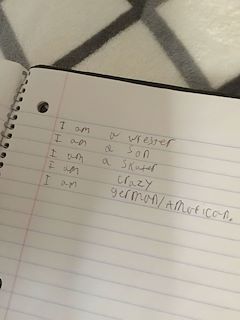 I am a wresler
I am a Son
I am a Skater
I am crazy
I am german/American.